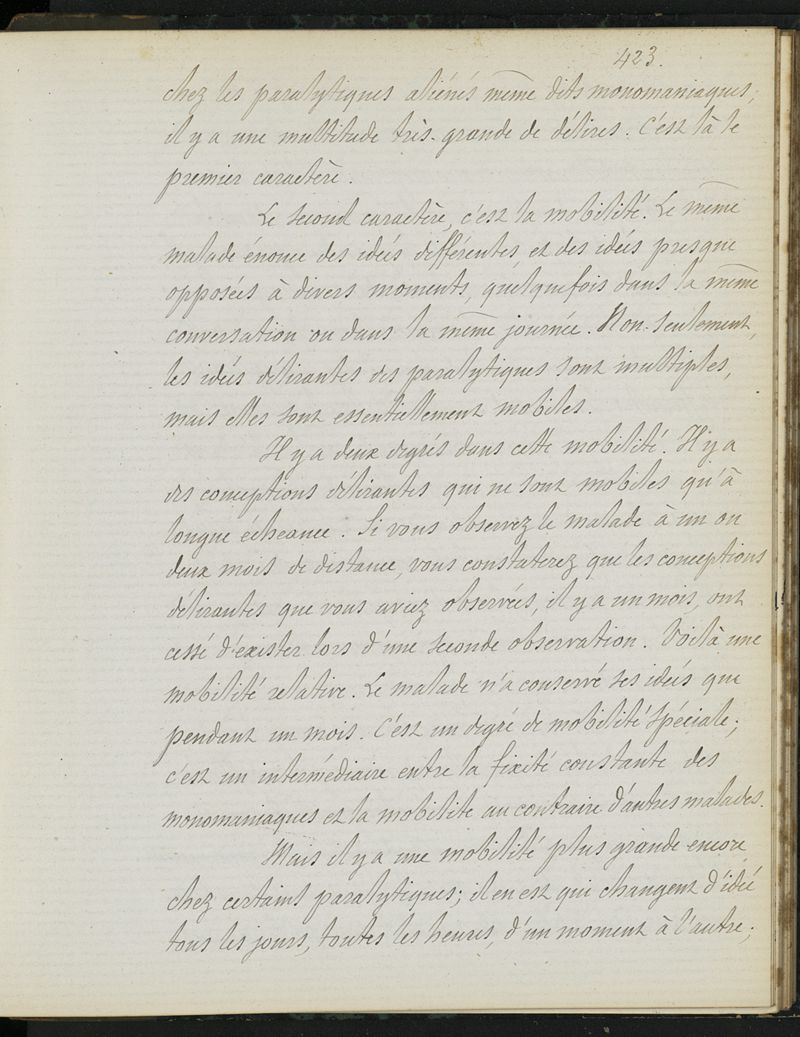 423.
chez les paralytiques aliénés même dits monomaniaques,
il y a une multitude très-grande de délires. C'est là le
premier caractère.
Le second caractère, c'est la mobilité. Le même
malade énonce des idées différentes, et des idées presque
opposées à divers moments, quelquefois dans la même
conversation ou dans la même journée. Non-seulement,
les idées délirantes des paralytiques sont multiples,
mais elles sont essentiellement mobiles.
Il y a deux degrés dans cette mobilité. Il y a
des conceptions délirantes qui ne sont mobiles qu'à
longue écheance. Si vous observez le malade à un ou
deux mois de distance, vous constaterez que les conceptions
délirantes que vous aviez observées, il y a un mois, ont
cessé d'exister lors d'une seconde observation. Voilà une
mobilité relative. Le malade n'a conservé ses idées que
pendant un mois. C'est un degré de mobilité spéciale;
c'est un intermédiaire entre la fixité constante des
monomaniaques et la mobilite au contraire d'autres malades.
Mais il y a une mobilité plus grande encore
chez certains paralytiques; il en est qui changent d'idée
tous les jours, toutes les heures, d'un moment à l'autre;